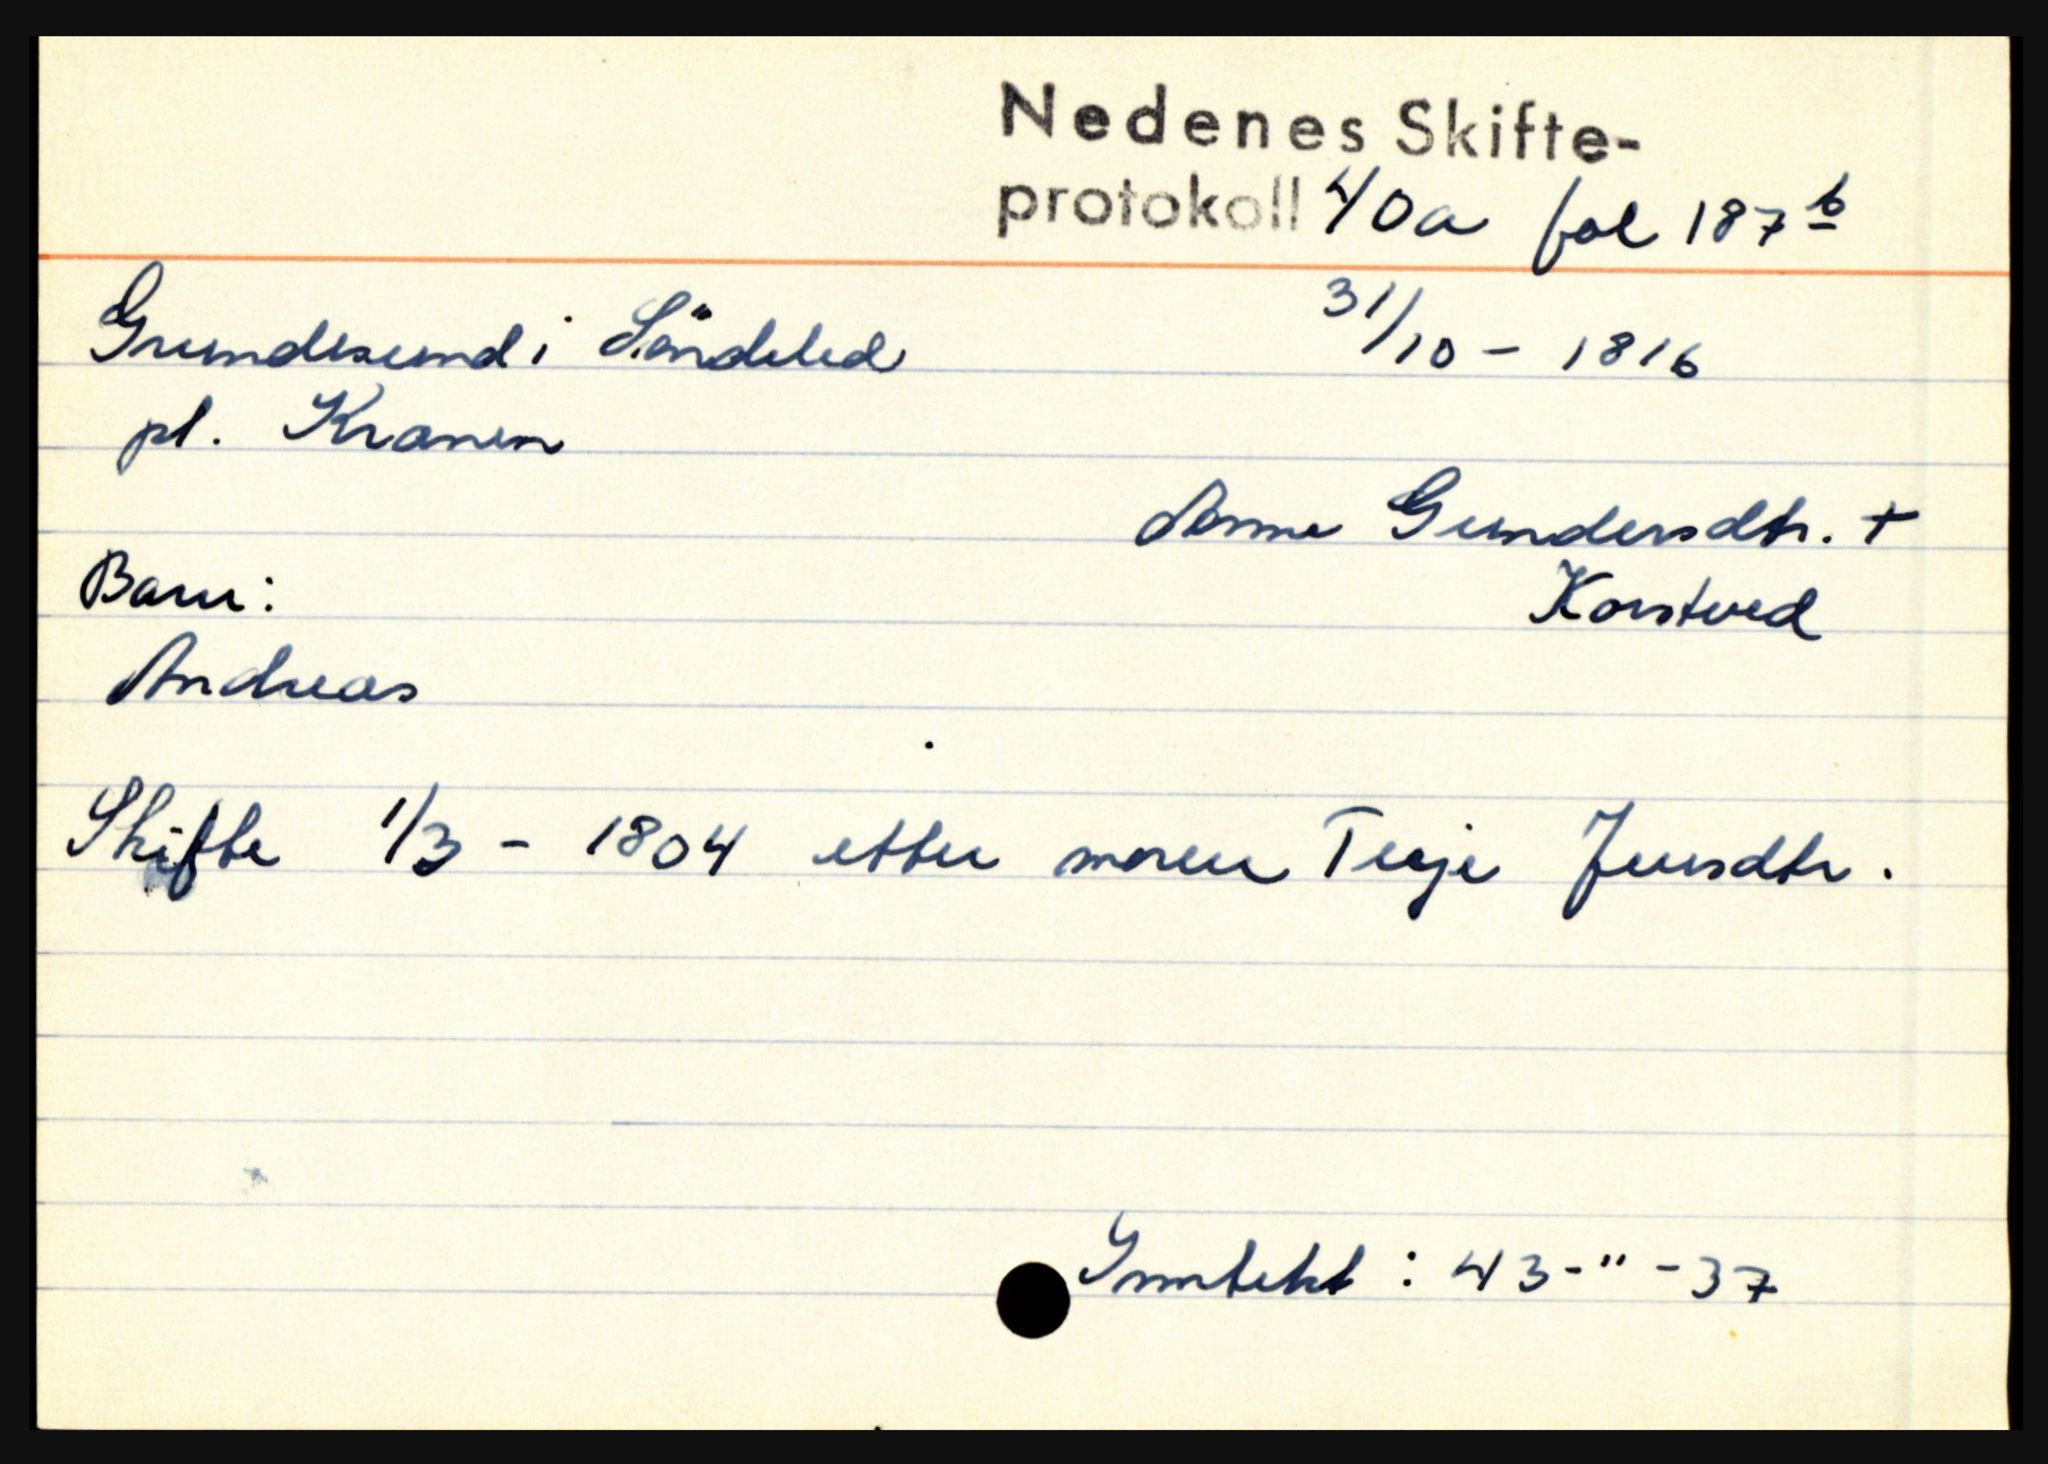 Nedenes Skifte-
protokoll 40a fol 187 b
Grundesund i Söndeled 31/10 - 1816
pl. Kranen
Anne Gundersdtr. +
Korstved
Barn:
Andreas
Skifte 1/3 - 1804 etter moren Terje Jensdtr.
Inntekt : 43-"-37